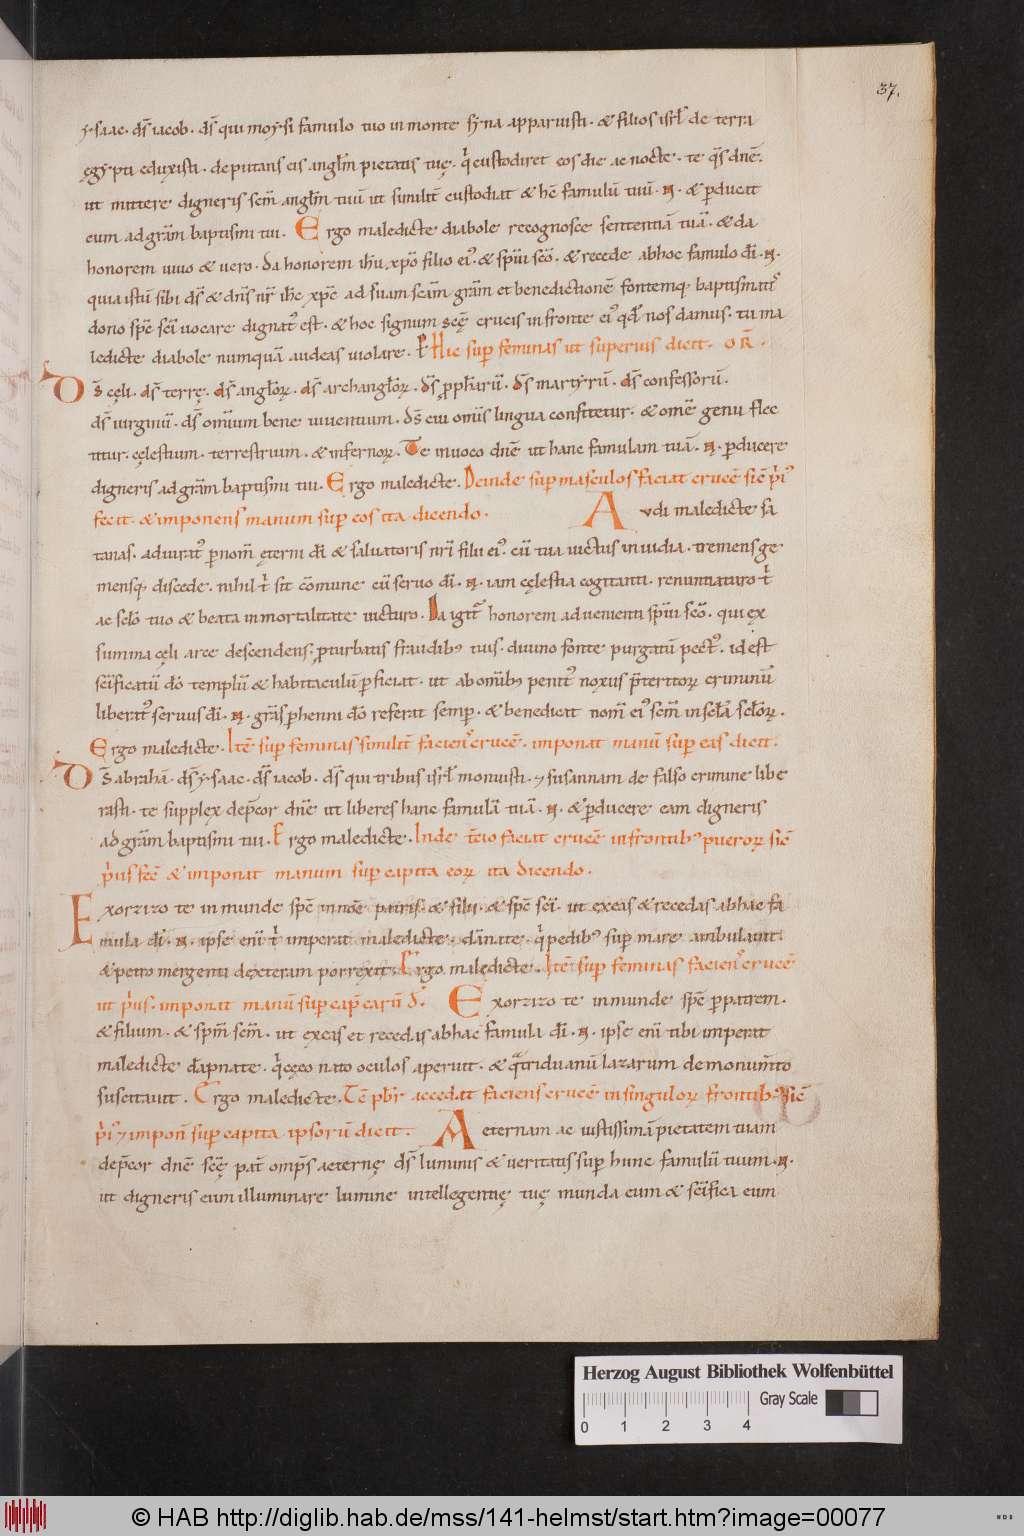 37.
ysaac. ds̄ iacob. ds̄ qui moysi famulo tuo in monte syna apparuisti. & filios isrl̄ de terra
ęgypti eduxisti. deputans eis anglm̄ pietatis tuę. q̇ custodiret eos die ac nocte. te qs̄ dn̄e.
ut mittere digneris scm̄ anglm̄ tuū ut similit̄ custodiat & hc̄ famulū tuū. N. & ꝑducat
eum ad grām baptismi tui. Ergo maledicte diabole recognosce sententiā tuā. & da
honorem uiuo & uero. da honorem ihū xp̄o filio ei᾿. & sp̄ui sc̄o. & recede ab hoc famulo dī. N.
quia istū sibi ds̄ & dn̄s nr̄ ihc̄ xp̄c ad suam scām grām et benedictionē fontemq; baptismatis
dono sp̄c sc̄i uocare dignat᾿ est. & hoc signum scę̄ crucis in fronte ei᾿ qd̄ nos damus. tu ma
ledicte diabole numquā audeas uiolare. Hic sup̄ feminas ut superius dicit. OR̄.
Ds̄ cęli. ds̄ terrę. ds̄ anglōꝝ. ds̄ archanglōꝝ. ds̄ p̄phārū. ds̄ martyrū. ds̄ confessorū.
ds̄ uirginū. ds̄ omīum bene uiuentium. ds̄ cui omīs lingua confitetur. & omē genu flec
titur. cęlestium. terrestrium. & infernoꝝ. Te inuoco dn̄e ut hanc famulam tuā. N. ꝑducere
digneris ad grām baptismi tui. Ergo maledicte. Deinde sup̄ masculos faciat crucē sic̄ pri᾿
fecit. & imponens manum sup̄ eos ita dicendo.
Audi maledicte sa
tanas. adiurat᾿ ꝑ nom̄ ęterni dī & saluatoris nrī filii ei᾿. cū tua uictus inuidia. tremens ge
mensq; discede. nihil t̄ sit cōmune cū seruo dī. N. iam cęlestia cogitanti. renuntiaturo t̄
ac sclō tuo & beata inmortalitate uicturo. Da igit̄ honorem aduenienti sp̄ui sc̄o. qui ex
summa cęli arce descendens. ꝑturbatis fraudib᾿ tuis. diuino fonte purgatū pect᾿. id est
sc̄ificatū dō templū & habitaculū ꝑficiat. ut ab omīb᾿ penit᾿ noxiis p̄teritoꝝ criminū
liberat᾿ seruus dī. N. grās ꝑhenni dō referat semp̄. & benedicat nom̄ ei᾿ scm̄ in sclā sclōꝝ.
Ergo maledicte. Itē sup̄ feminas similit̄ facien᾿ crucē. imponat manū sup̄ eas dicit.
Ds̄ abrahā. ds̄ ysaac. ds̄ iacob. ds̄ qui tribus isrl̄ monuisti. & susannam de falso crimine libe
rasti. te supplex dep̄cor dn̄e ut liberes hanc famulā tuā. N. & ꝑducere eam digneris
ad grām baptismi tui. Ergo maledicte. Inde t̄cio faciat crucē in frontib᾿ pueroꝝ sic̄
p̄us fec̄ & imponat manum sup̄ capita eoꝝ ita dicendo.
Exorzizo te inmunde sp̄c in noē patris. & filii. & sp̄c sc̄i. ut exeas & recedas ab hac fa
mula dī. N. ipse enī t̄ imperat maledicte. dānate. q̇ pedib᾿ sup̄ mare ambulauit
& petro mergenti dexteram porrexit. Ergo maledicte. Itē sup̄ feminas facien᾿ crucē
ut p̄us. imponat manū sup̄ cap̄ earū d᾿.
Exorzizo te inmunde sp̄c ꝑ patrem.
& filium. & sp̄m scm̄. ut exeas et recedas ab hac famula dī. N. ipse enī tibi imperat
maledicte dāpnate. q̇ cęco nato oculos aperuit. & qtriduanū lazarum de monum̄to
suscitauit. Ergo maledicte. Tc̄ pbr̄ accedat faciens crucē in singuloꝝ frontib᾿ sic̄
pri᾿ & impon̄ sup̄ capita ipsorū dicit.
Aeternam ac iustissimā pietatem tuam
dep̄cor dn̄e scę̄ pat̄ omp̄s aeternę ds̄ luminis & ueritatis sup̄ hunc famulū tuum. N.
ut digneris eum illuminare lumine intellegentię tuę munda eum & sc̄ifica eum
Herzog August Bibliothek Wolfenbüttel
Gray Scale
0 1 2 3 4
© HAB http://diglib.hab.de/mss/141-helmst/start.htm?image=00077